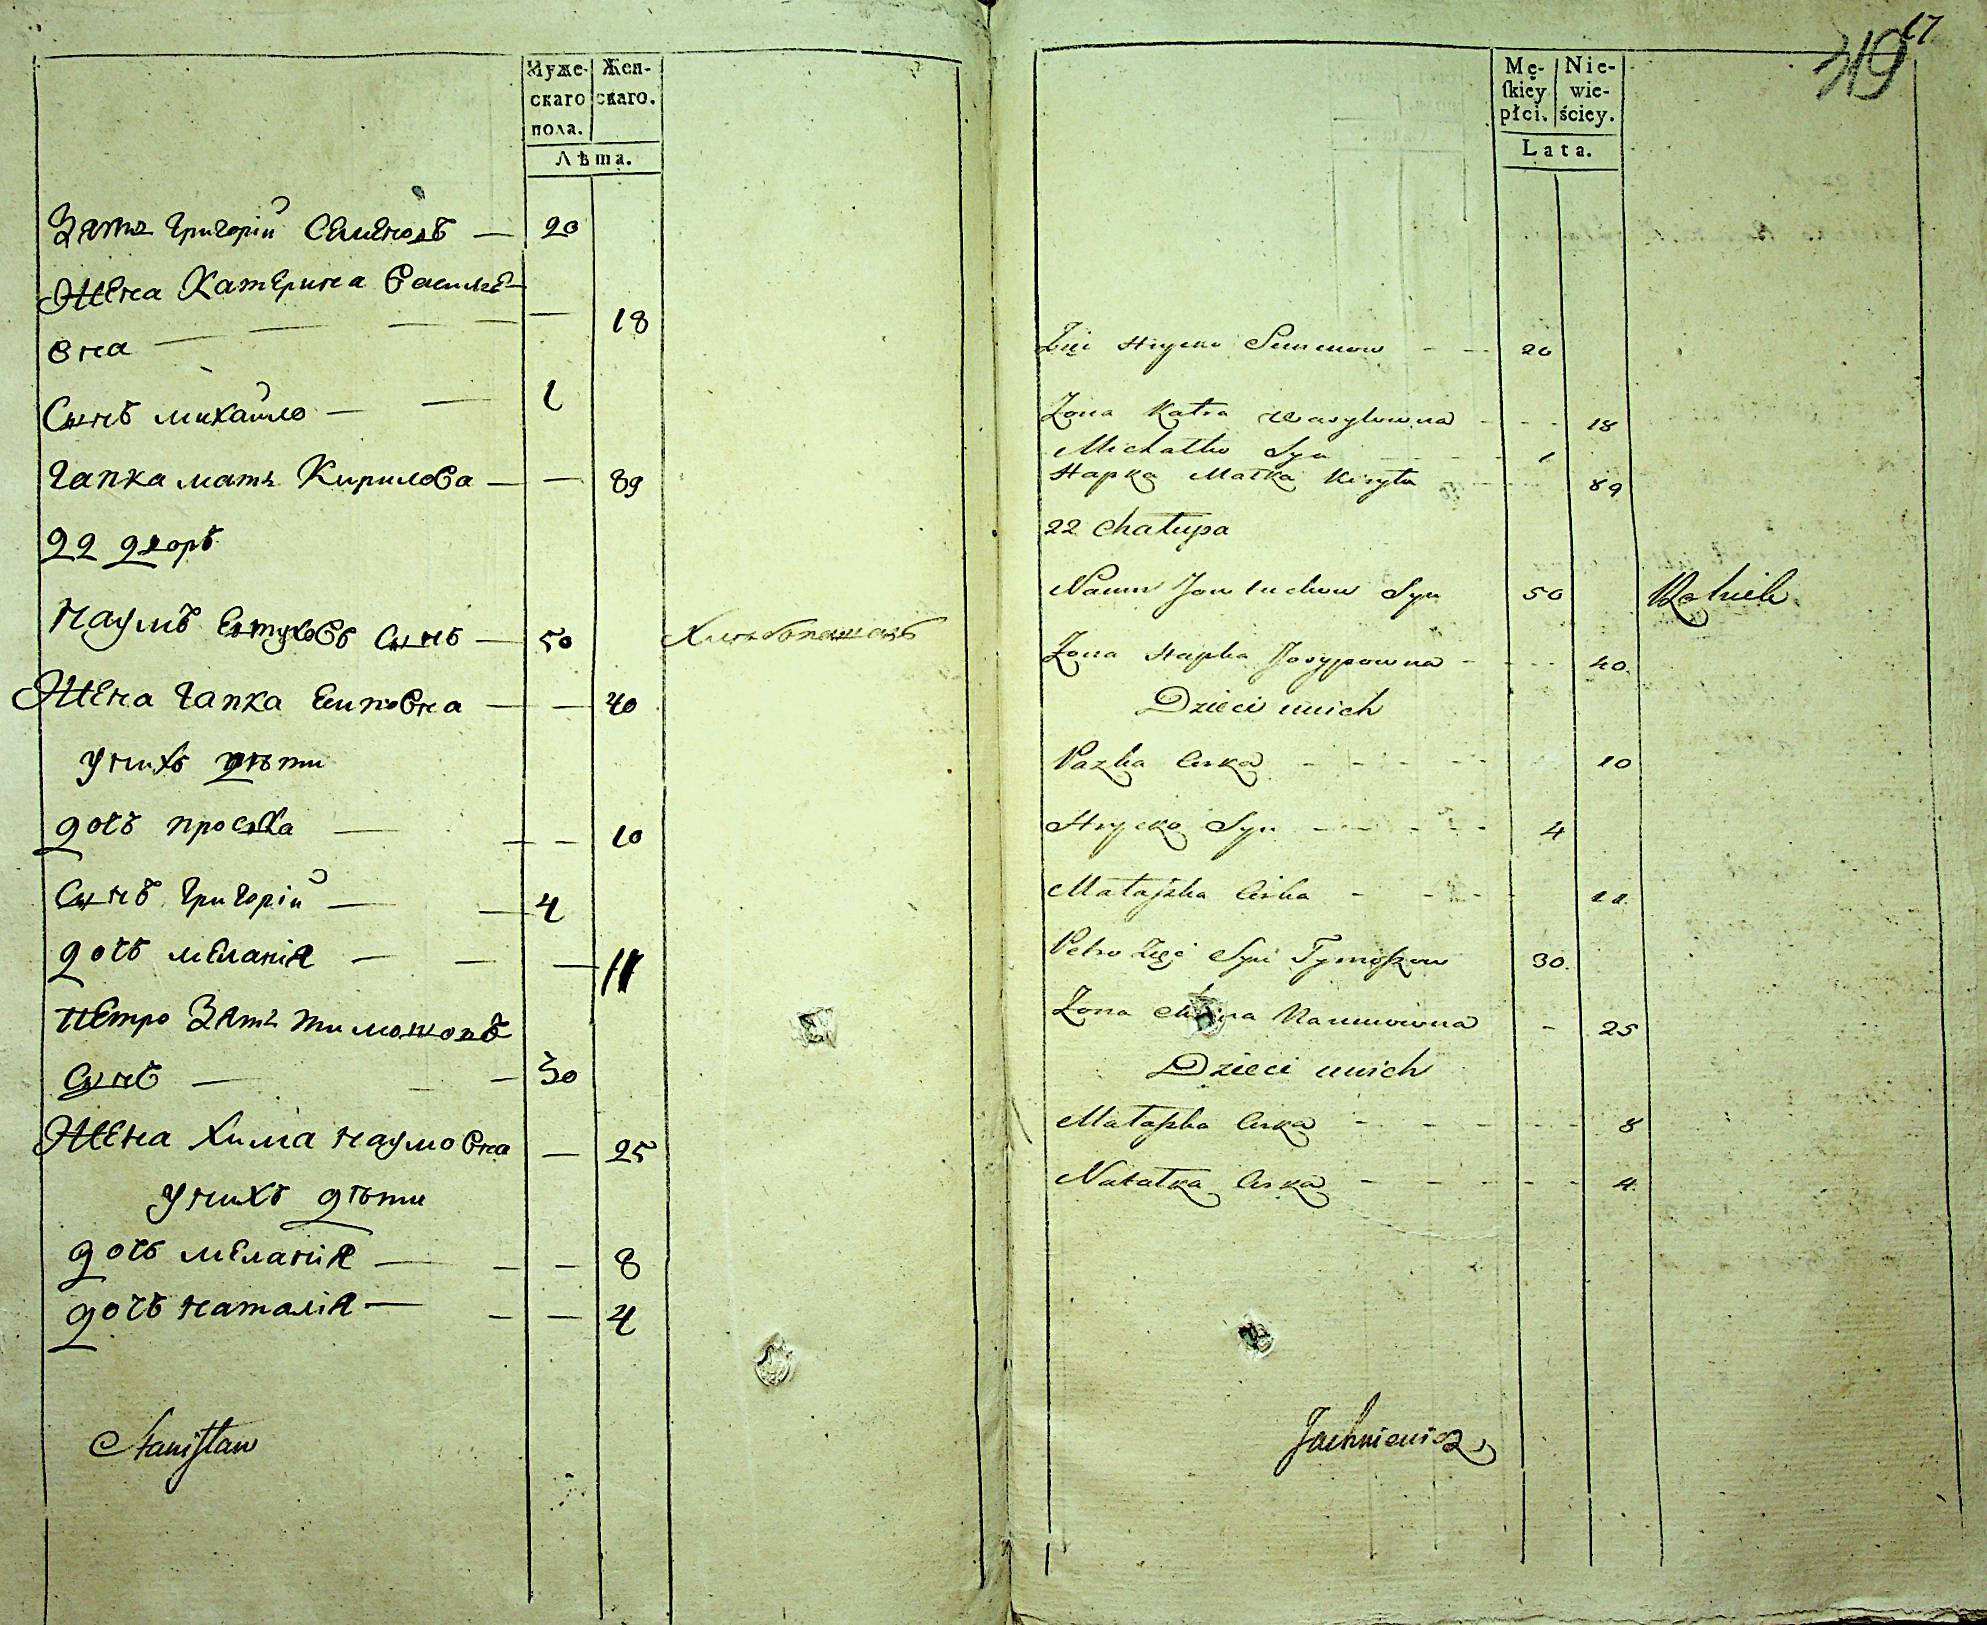 Муже-
скаго
пола.
Жен-
скаго.
Лѣта.
Зять Григорій Семеновъ — 20
Жена Катерина Василье-
вна — — — — 18
Сынъ михайло — — 1
Гапка мать Кирилова — — 89
22 дворъ
Наумъ Евтуховъ Сынъ — 50 Хлѣбопашецъ
Жена Гапка Есиповна — — 40
У нихъ дѣти
дочь Проска — — — 10
Сынъ Григорій — — 4
дочь меланія — — — 11
Петро Зять тимошовъ
Сынъ — — — 30
Жена Хима наумовна — 25
У нихъ дѣти
дочь меланія — — — 8
дочь наталія — — — 4
Stanisław
17
319
Mę-
skiey
płci.
Nie-
wie-
ściey.
Lata.
Zięć Hrycko Semenow - - 20
Zona Katra Wasylowna - - - 18
Michałko Syn - - - 1
Hapka Matka Kiryła - - - 89
22 Chałupa
Naum Jowtuchow Syn 50 Rolnik
Zona Hapka Josypowna - - - - 40.
Dzieci u nich
Pazka Corka - - - - - - 10
Hrycko Syn - - - - - 4
Małaszka Corka - - - - - 11.
Petro Zięć Syn Tymoszow 30.
Zona Chima Naumowna - 25
Dzieci u nich
Małaszka Corka - - - - - - - 8
Natałka Corka - - - - - - - 4.
Jachniewicz